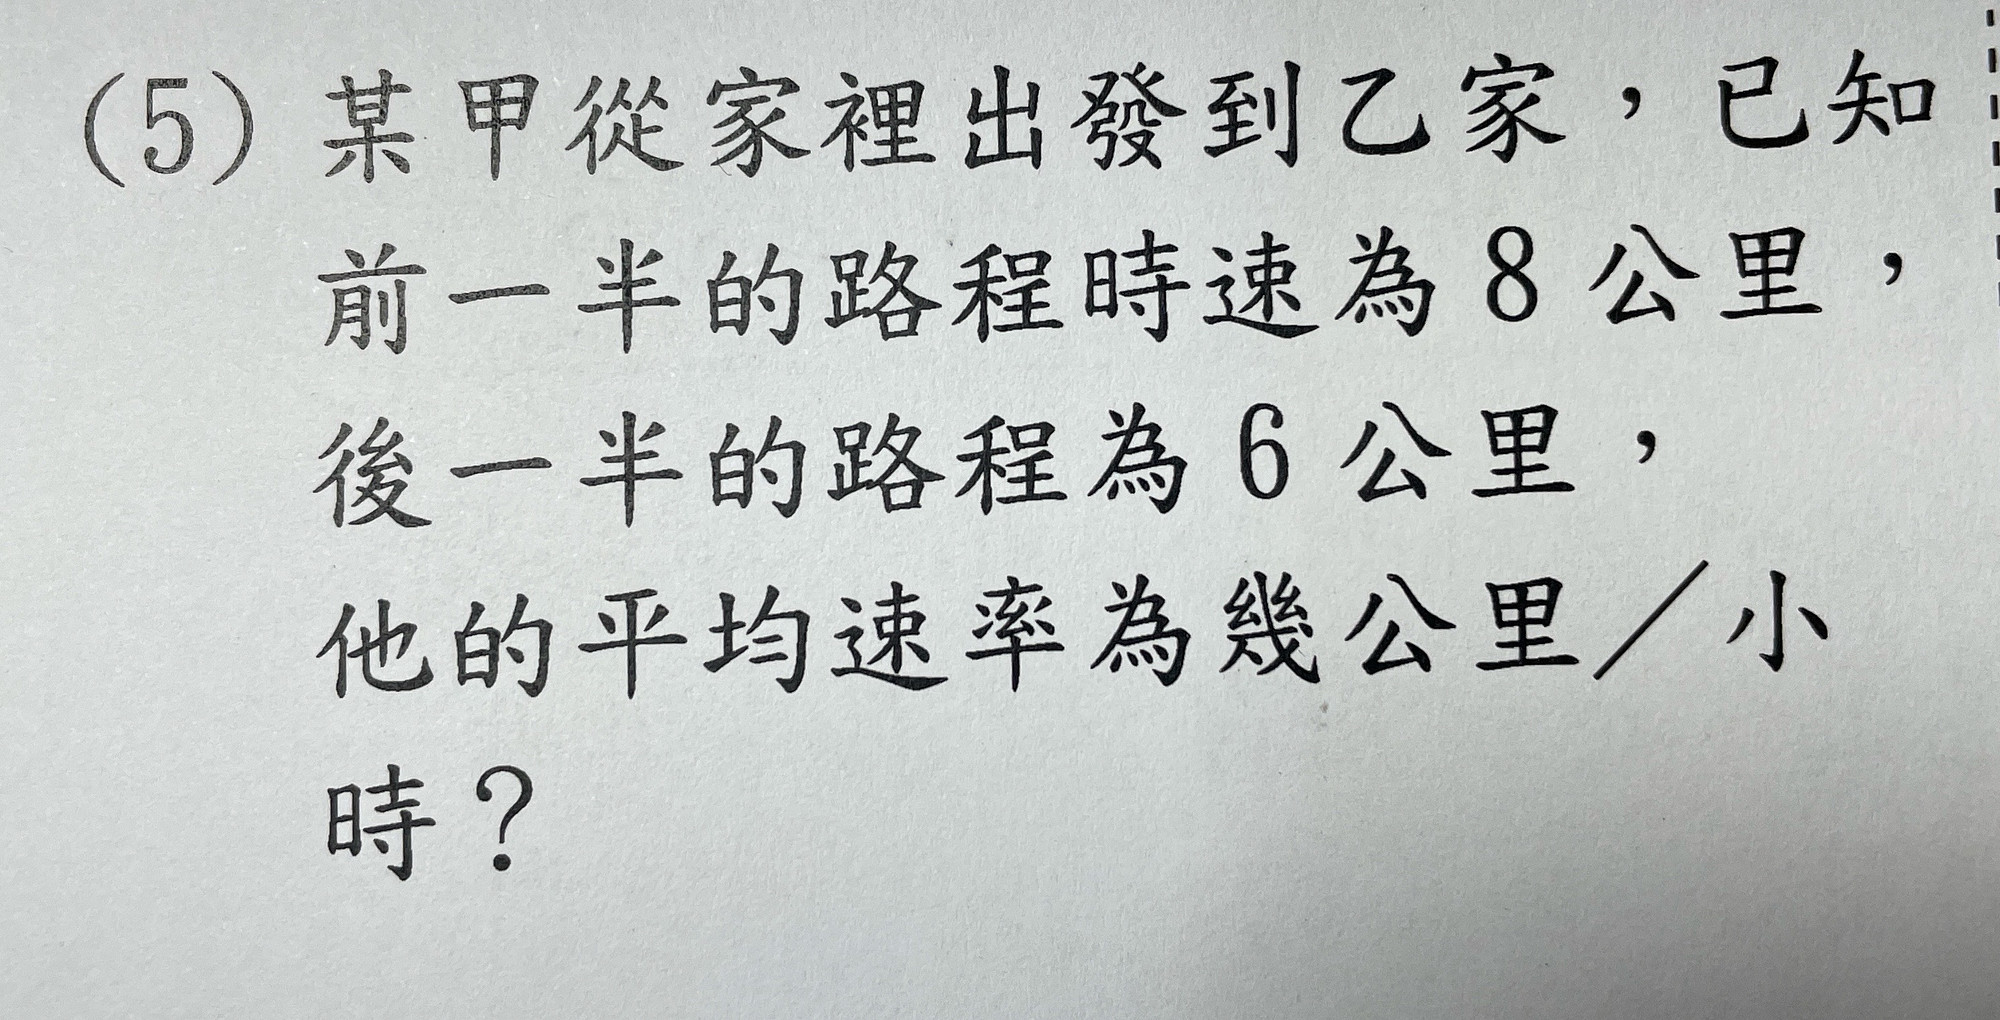 (5) 某甲從家裡出發到乙家，已知
前一半的路程時速為 8 公里，
後一半的路程為 6 公里，
他的平均速率為幾公里／小
時？